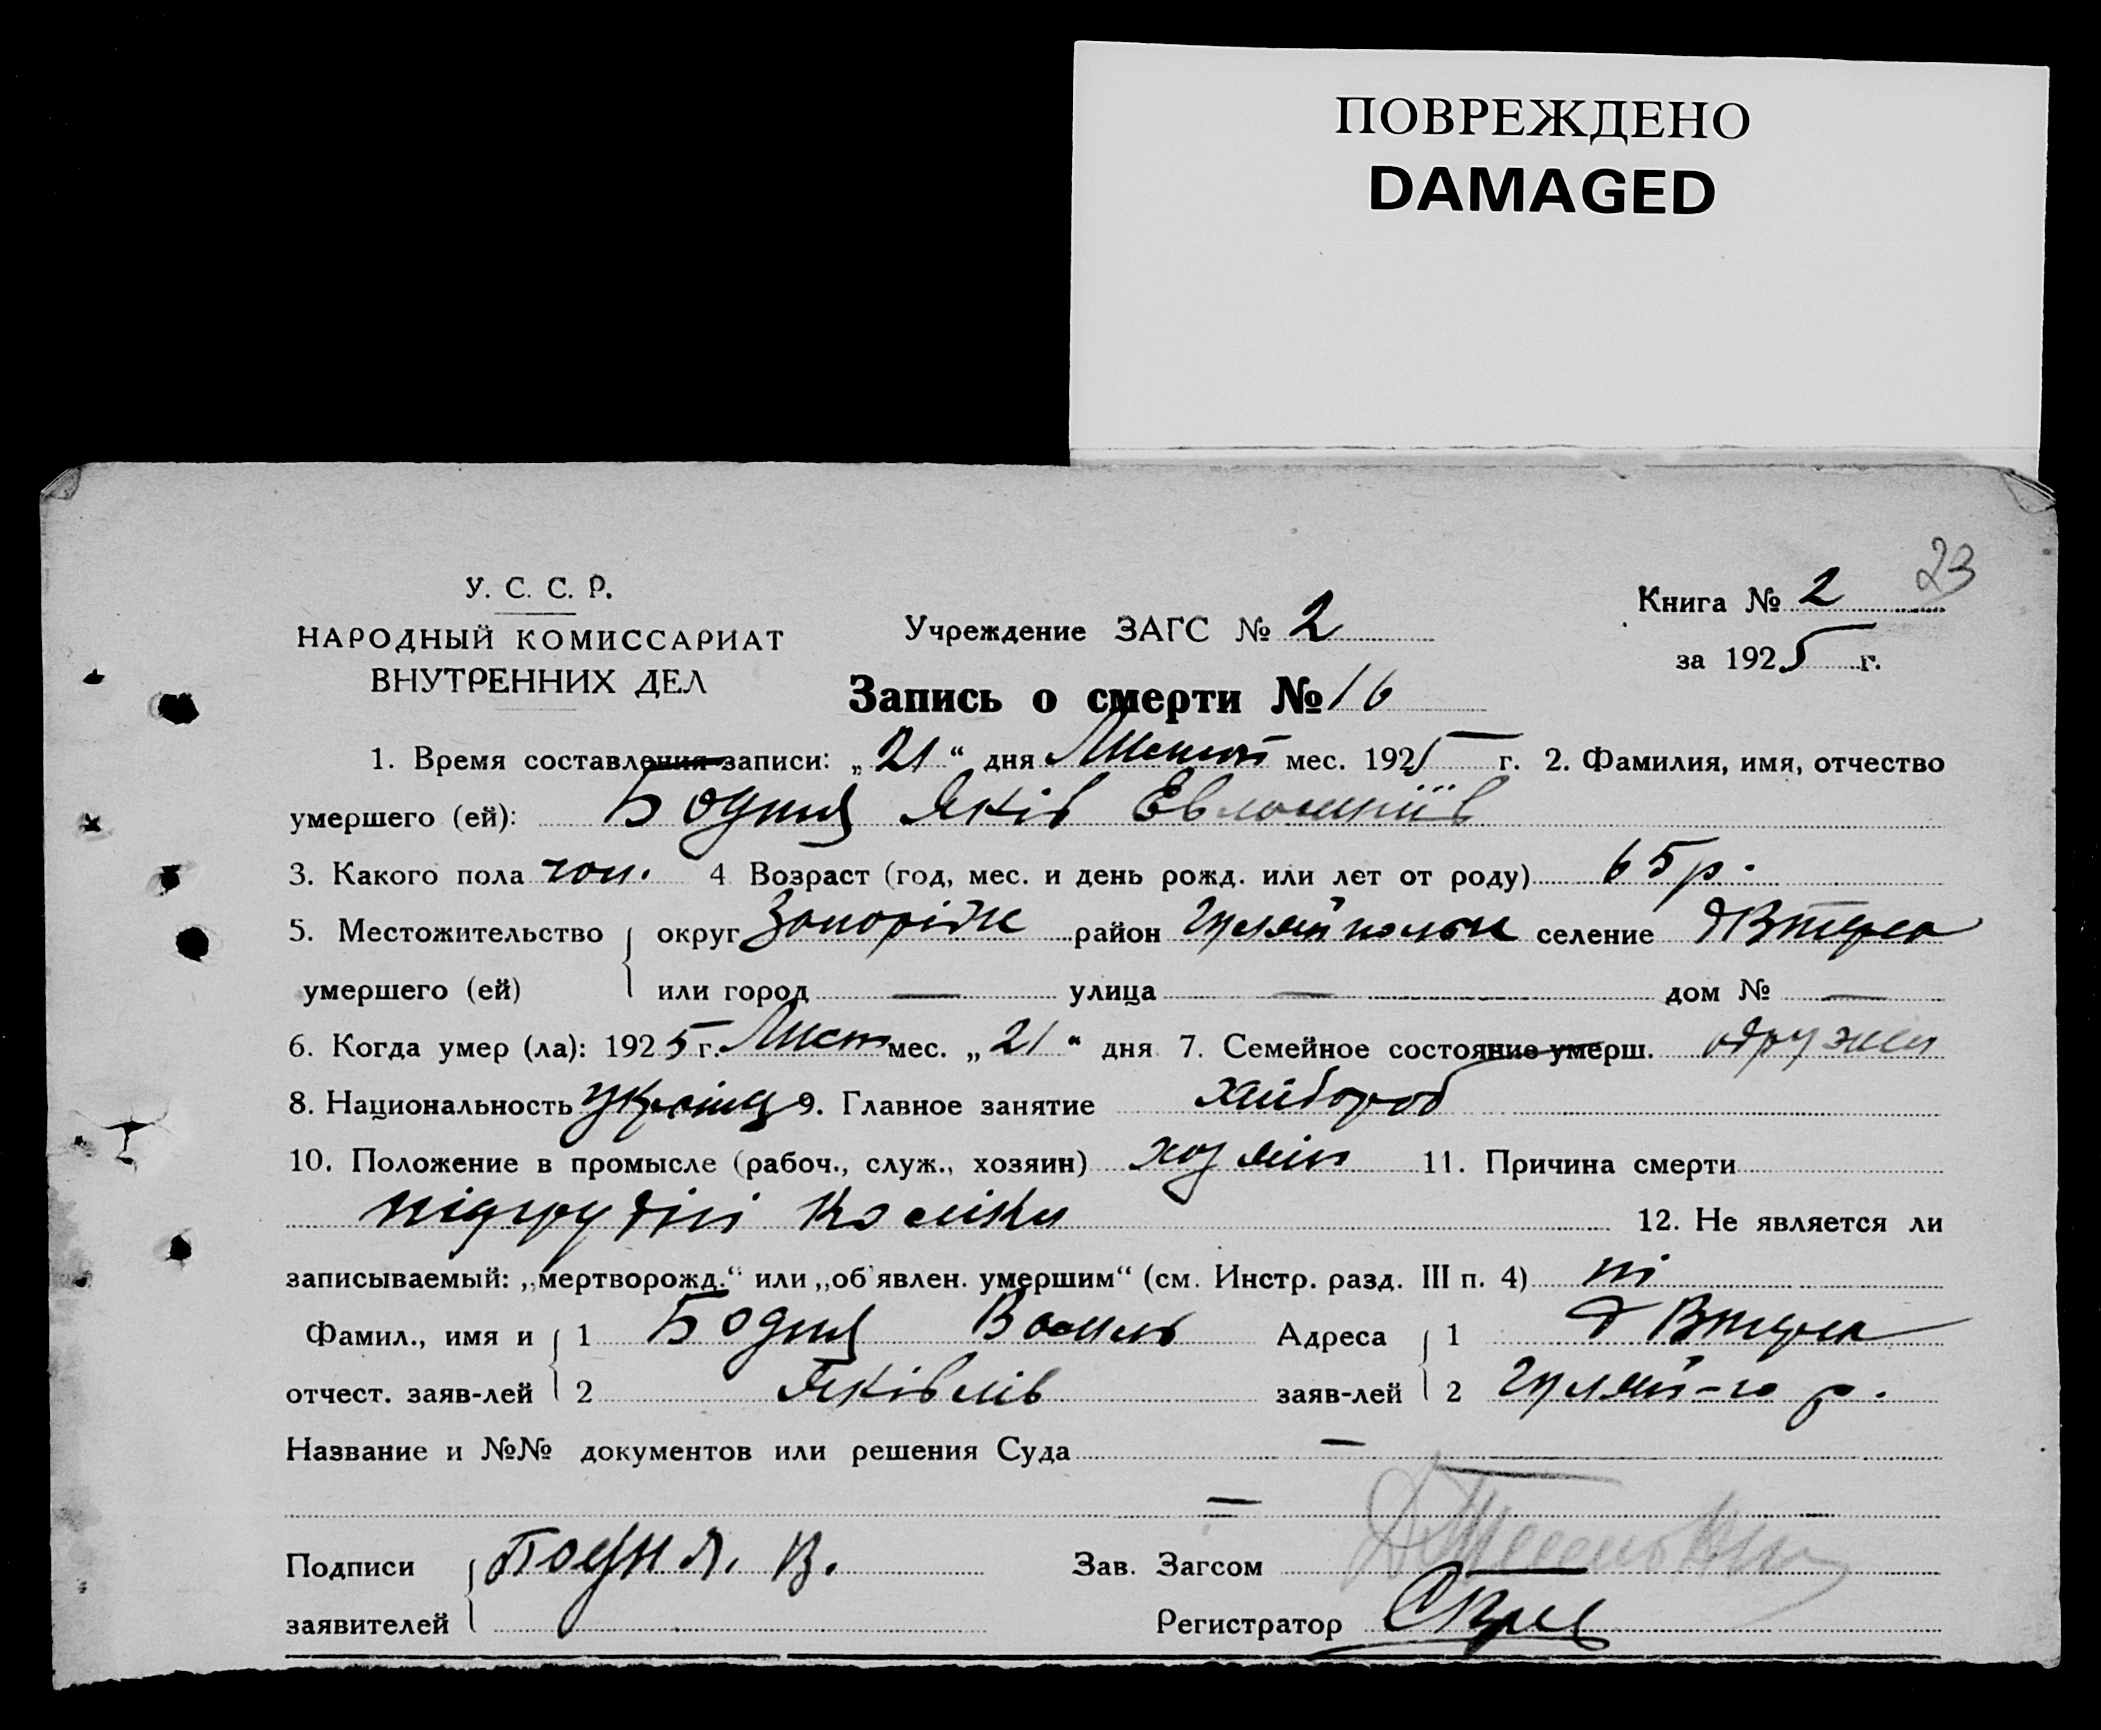 ПОВРЕЖДЕНО
DAMAGED
23
У. С. С. Р.
НАРОДНЫЙ КОМИССАРИАТ
ВНУТРЕННИХ ДЕЛ
Учреждение ЗАГС № 2
Книга № 2
за 1925 г.
Запись о смерти № 16
1. Время составления записи: „21“ дня мес. 1925 г. 2. Фамилия, имя, отчество
умершего (ей): Бодня Яків
3. Какого пола чол. 4 Возраст (год, мес. и день рожд. или лет от роду) 65 р.
5. Местожительство округ Запоріж район селение
умершего (ей) или город — улица — дом № —
6. Когда умер (ла): 1925 г. Лист мес. „21“ дня 7. Семейное состояние умерш.
8. Национальность 9. Главное занятие хлібороб
10. Положение в промысле (рабоч., служ., хозяин) хозяїн 11. Причина смерти
12. Не является ли
записываемый: „мертворожд.“ или „об'явлен. умершим“ (см. Инстр. разд. III п. 4) ні
Фамил., имя и 1 Бодня Василь Адреса 1
отчест. заяв-лей 2 Яківлів заяв-лей 2 Гуляй-го р.
Название и №№ документов или решения Суда —
—
Подписи Бодня. В. Зав. Загсом
заявителей Регистратор